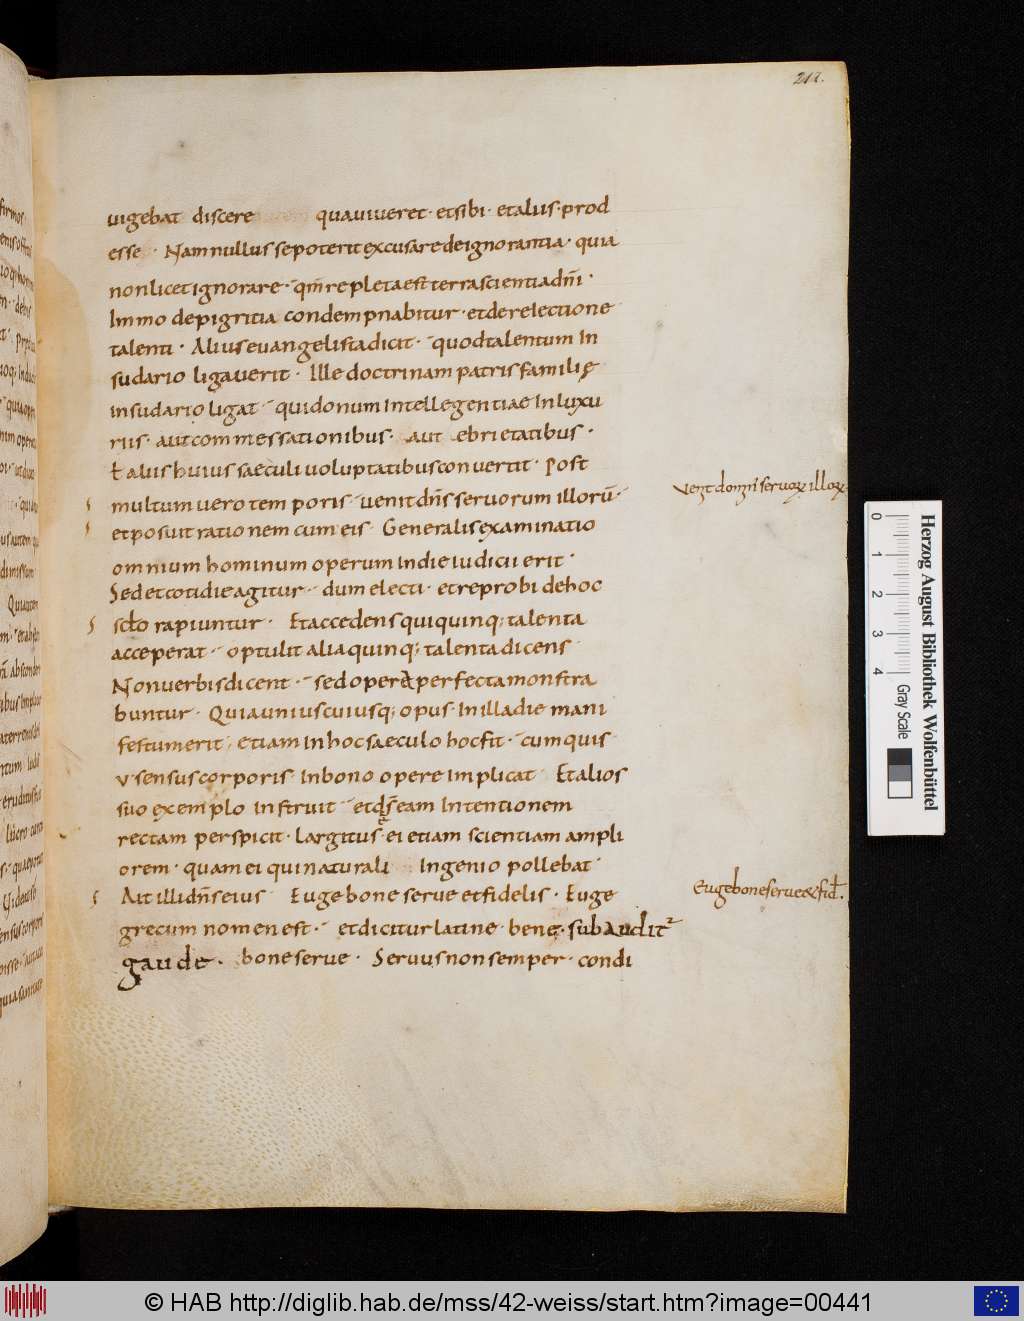 217.
uigebat discere qua uiueret· et sibi· et alus· prod
esse· Nam nullus se poterit excusare de ignorantia· quia
non licet ignorare· qm̄ repleta est terra scientia dn̄i·
Immo de pigritia condempnabitur· et de relectione
talenti· Alius euangelista dicit· quod talentum in
sudario ligauerit· Ille doctrinam patris familię
in sudario ligat· qui donum intellegentiae in luxu
riis· aut commessationibus· aut ebrietatibus·
ł aliis huius saeculi uoluptatibus conuertit· Post
multum uero temporis· uenit dn̄s seruorum illorū·
et posuit rationem cum eis· Generalis examinatio
omnium hominum operum in die iudicii erit·
Sed et cotidie agitur· dum electi· et reprobi de hoc
sc̄lo rapiuntur· Et accedens qui quinq; talenta
acceperat· optulit alia quinq; talenta dicens
Non uerbis dicent· sed opere perfecta monstra
buntur· Quia uniuscuiusq; opus· in illa die mani
festum erit; etiam in hoc saeculo hoc fit· cum quis
v· sensus corporis· in bono opere implicat Et alios
suo exemplo instruit· et ds̄ eam intentionem
rectam perspicit· largitus· ei etiam scientiam ampli
orem· quam ei qui naturali ingenio pollebat·
Ait illi dn̄s eius Euge bone serue et fidelis· Euge
grecum nomen est· et dicitur latine· bene· subauditr
gaude· bone serue· Seruus non semper· condi
Venit domin̄ seruoꝝ illoꝝ
Euge bone serue & fid̄.
0 1 2 3 4
Herzog August Bibliothek Wolfenbüttel
Gray Scale
© HAB http://diglib.hab.de/mss/42-weiss/start.htm?image=00441